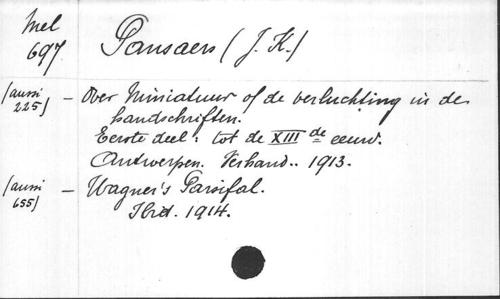 Mel
697
Pansaers (J. K.)
(aussi
225)
— Over Miniatuur of de verluchting in de
handschriften.
Eerste deel: tot de XIII de eeuw.
Antwerpen. Verhand.. 1913.
(aussi
655)
— Wagner's Parsifal.
Ibid. 1914.